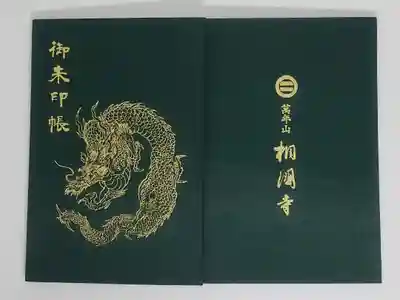 御朱印帳
萬年山
相國寺